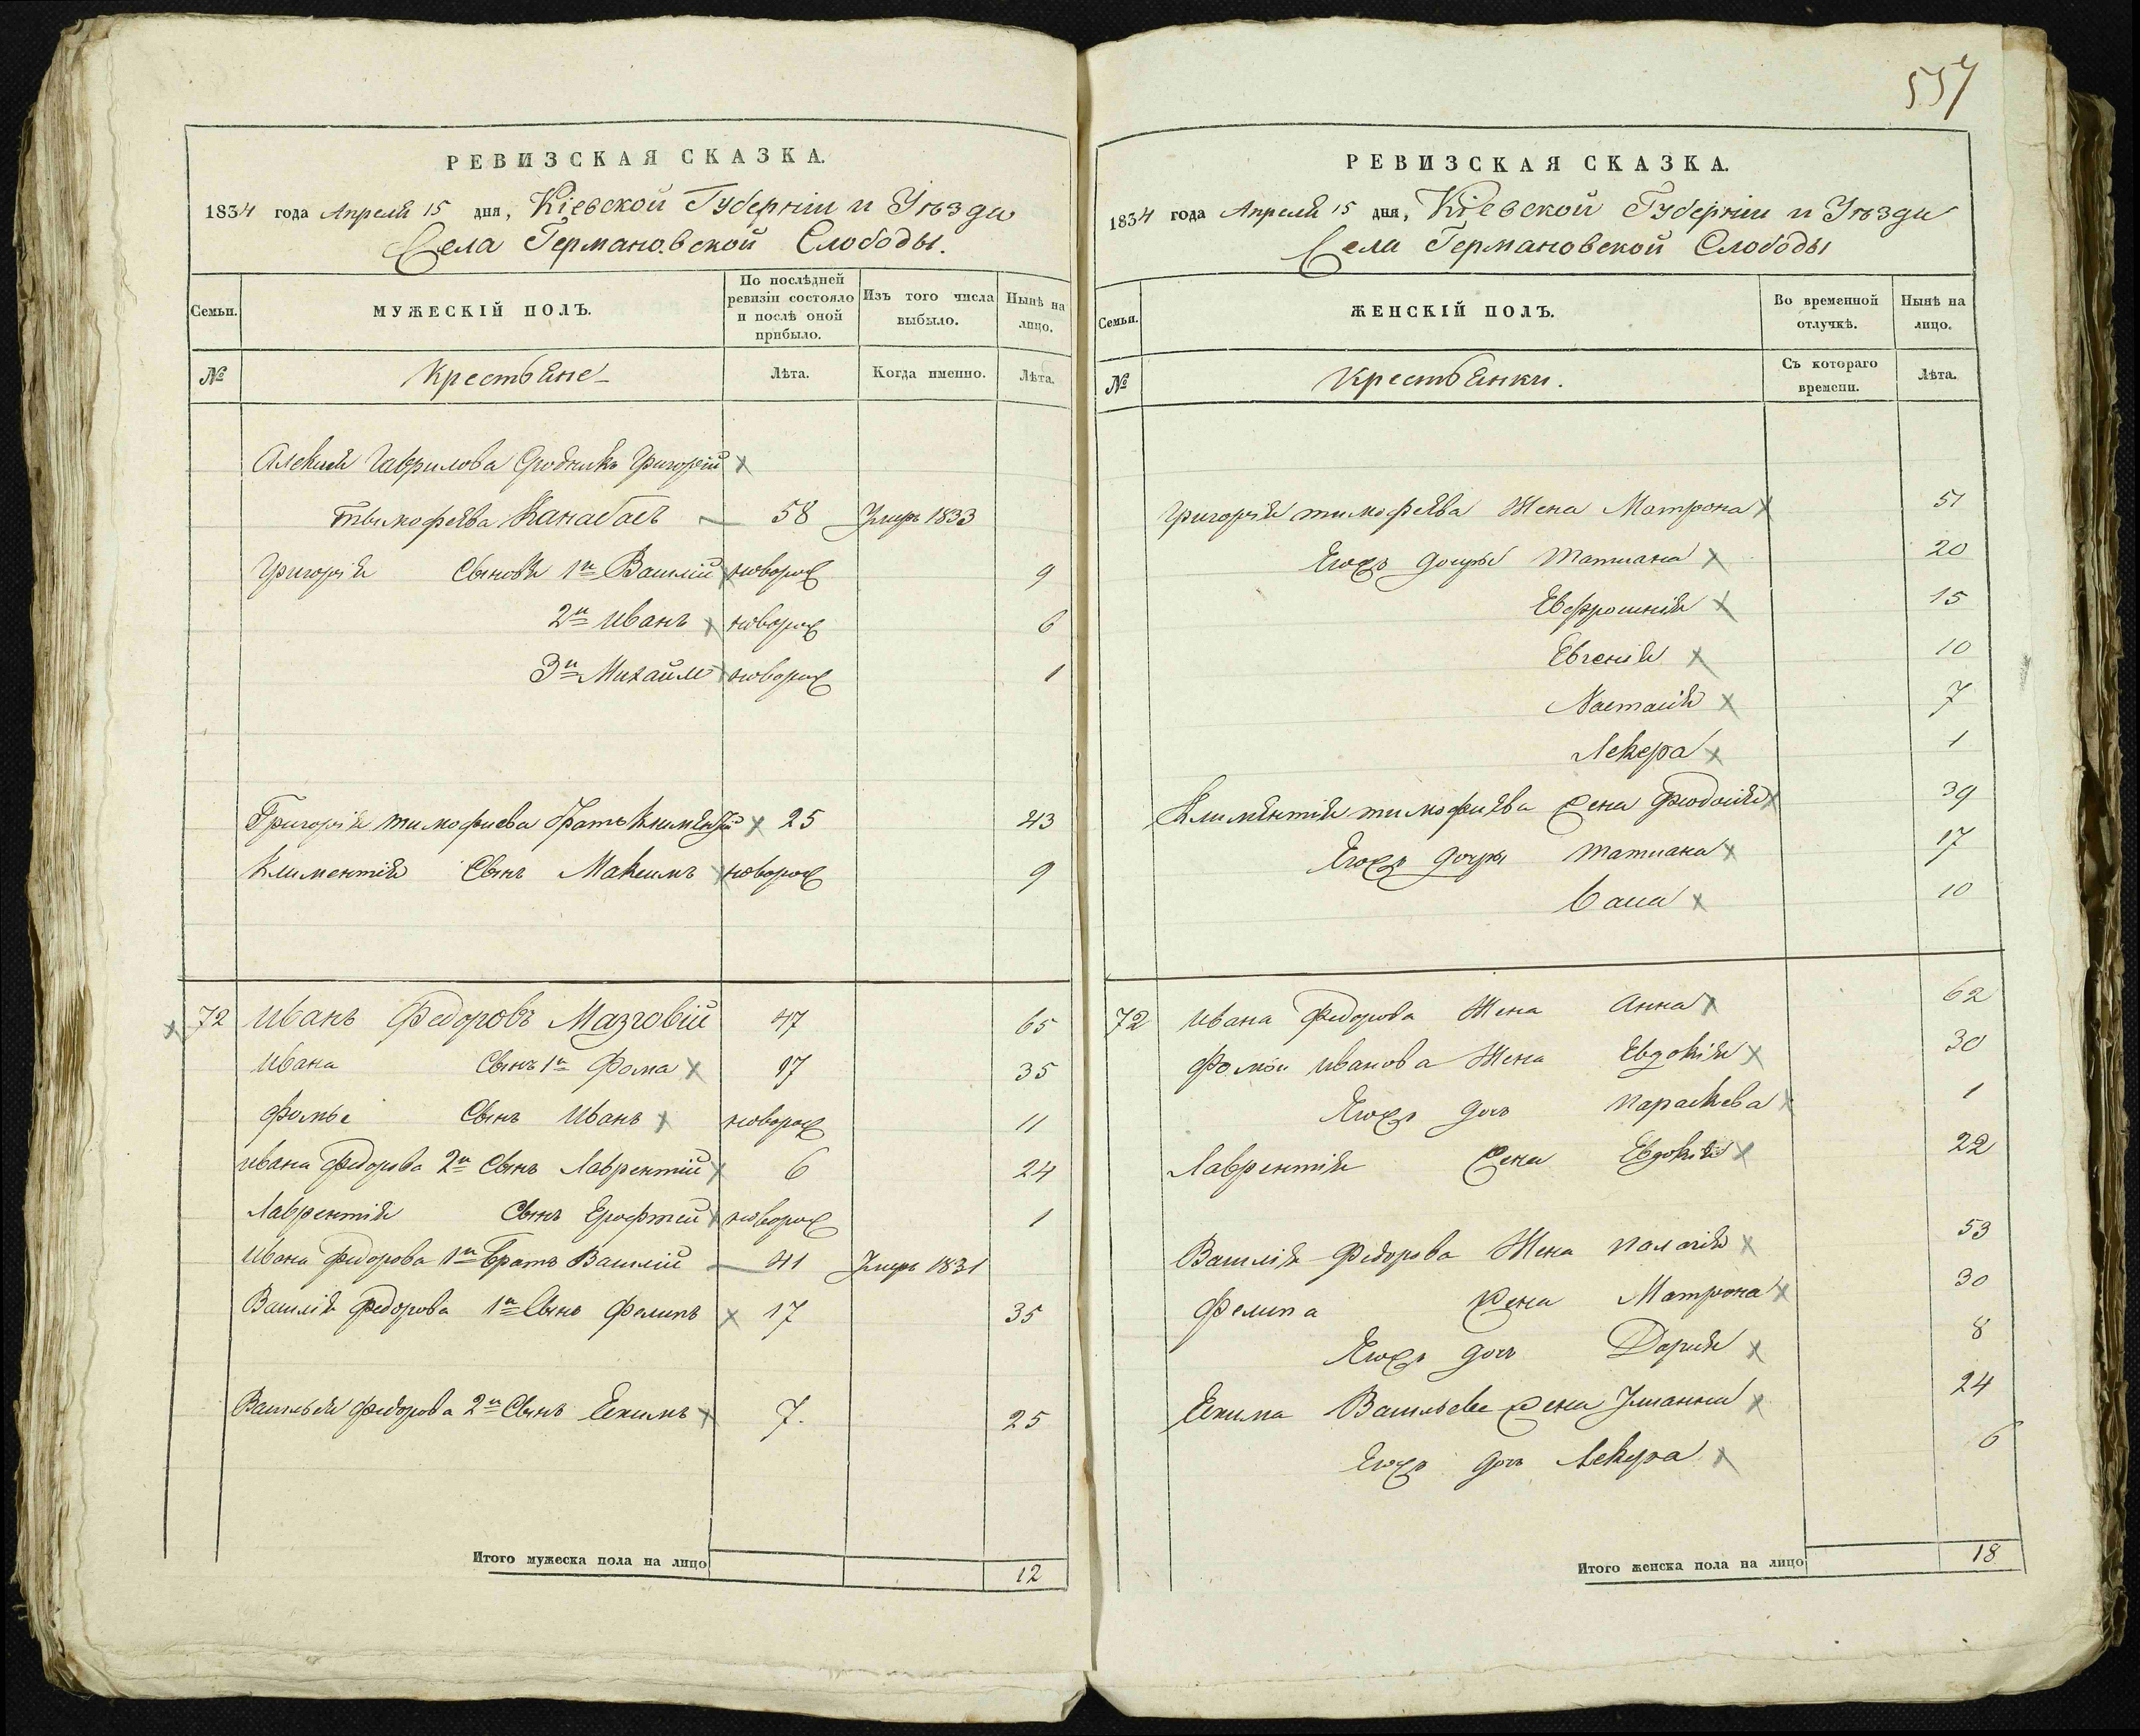 557
РЕВИЗСКАЯ СКАЗКА.
1834 года Апреля 15 дня, Кіевской Губерніи и Уѣзда
Села Германовской Слободы.
Семьи.
МУЖЕСКІЙ ПОЛЪ.
По послѣдней ревизіи состояло и послѣ оной прибыло.
Изъ того числа выбыло.
Нынѣ на лицо.
№
Крестьяне
Лѣта.
Когда именно.
Лѣта.
Алексѣя Гаврилова Григорій
Тимофеева 58 Умеръ 1833
Григорія Сыновя 1й Василій новорож 9
2й Иванъ новорож 6
3й Михайло новорож 1
Григорія Тимофиева Братъ Климентій 25 43
Климентія Сынъ Максимъ новорож 9
72 Иванъ Федоровъ Мазговій 47 65
Ивана Сынъ 1й Фома 17 35
Фомы Сынъ Иванъ новорож 11
Ивана Федорова 2й Сынъ Лаврентій 6 24
Лаврентія Сынъ Ерофтей новорож 1
Ивана Федорова 1й Братъ Василій 41 Умеръ 1831
Василія Федорова 1й Сынъ Фелипъ 17 35
Васильея Федорова 2й Сынъ Екимъ 7. 25
Итого мужеска пола на лицо 12
РЕВИЗСКАЯ СКАЗКА.
1834 года Апреля 15 дня, Кіевской Губерніи и Уѣзда
Села Германовской Слободы
Семьи.
ЖЕНСКІЙ ПОЛЪ.
Во временной отлучкѣ.
Нынѣ на лицо.
№
Крестьянки.
Съ котораго времени.
Лѣта.
Григорія Тимофеева Жена Матрона 51
Егожъ дочры Татиана 20
Евфросинія 15
Евгенія 10
Настасія 7
Лекера 1
Климентія Тимофиева жена Феодосія 39
Егожъ дочры Татиана 17
10
72 Ивана Федорова Жена Анна 62
Фомы Иванова Жена Евдокія 30
Егожъ дочъ Параскева 1
Лаврентія жена Евдокія 22
Василія Федорова Жена Палагія 53
Фелипа жена Матрона 30
Егожъ дочъ Дарія 8
Екима Васильева жена Улианна 24
Егожъ дочъ Лекера 6
Итого женска пола на лицо 18